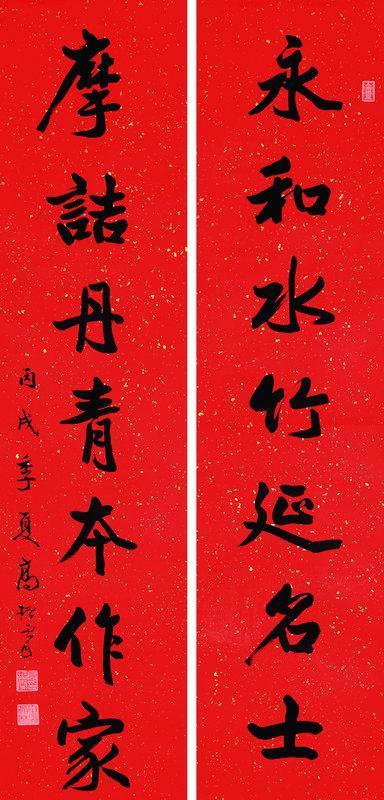 永和水竹延名士
摩詰丹青本作家
丙戌季夏高